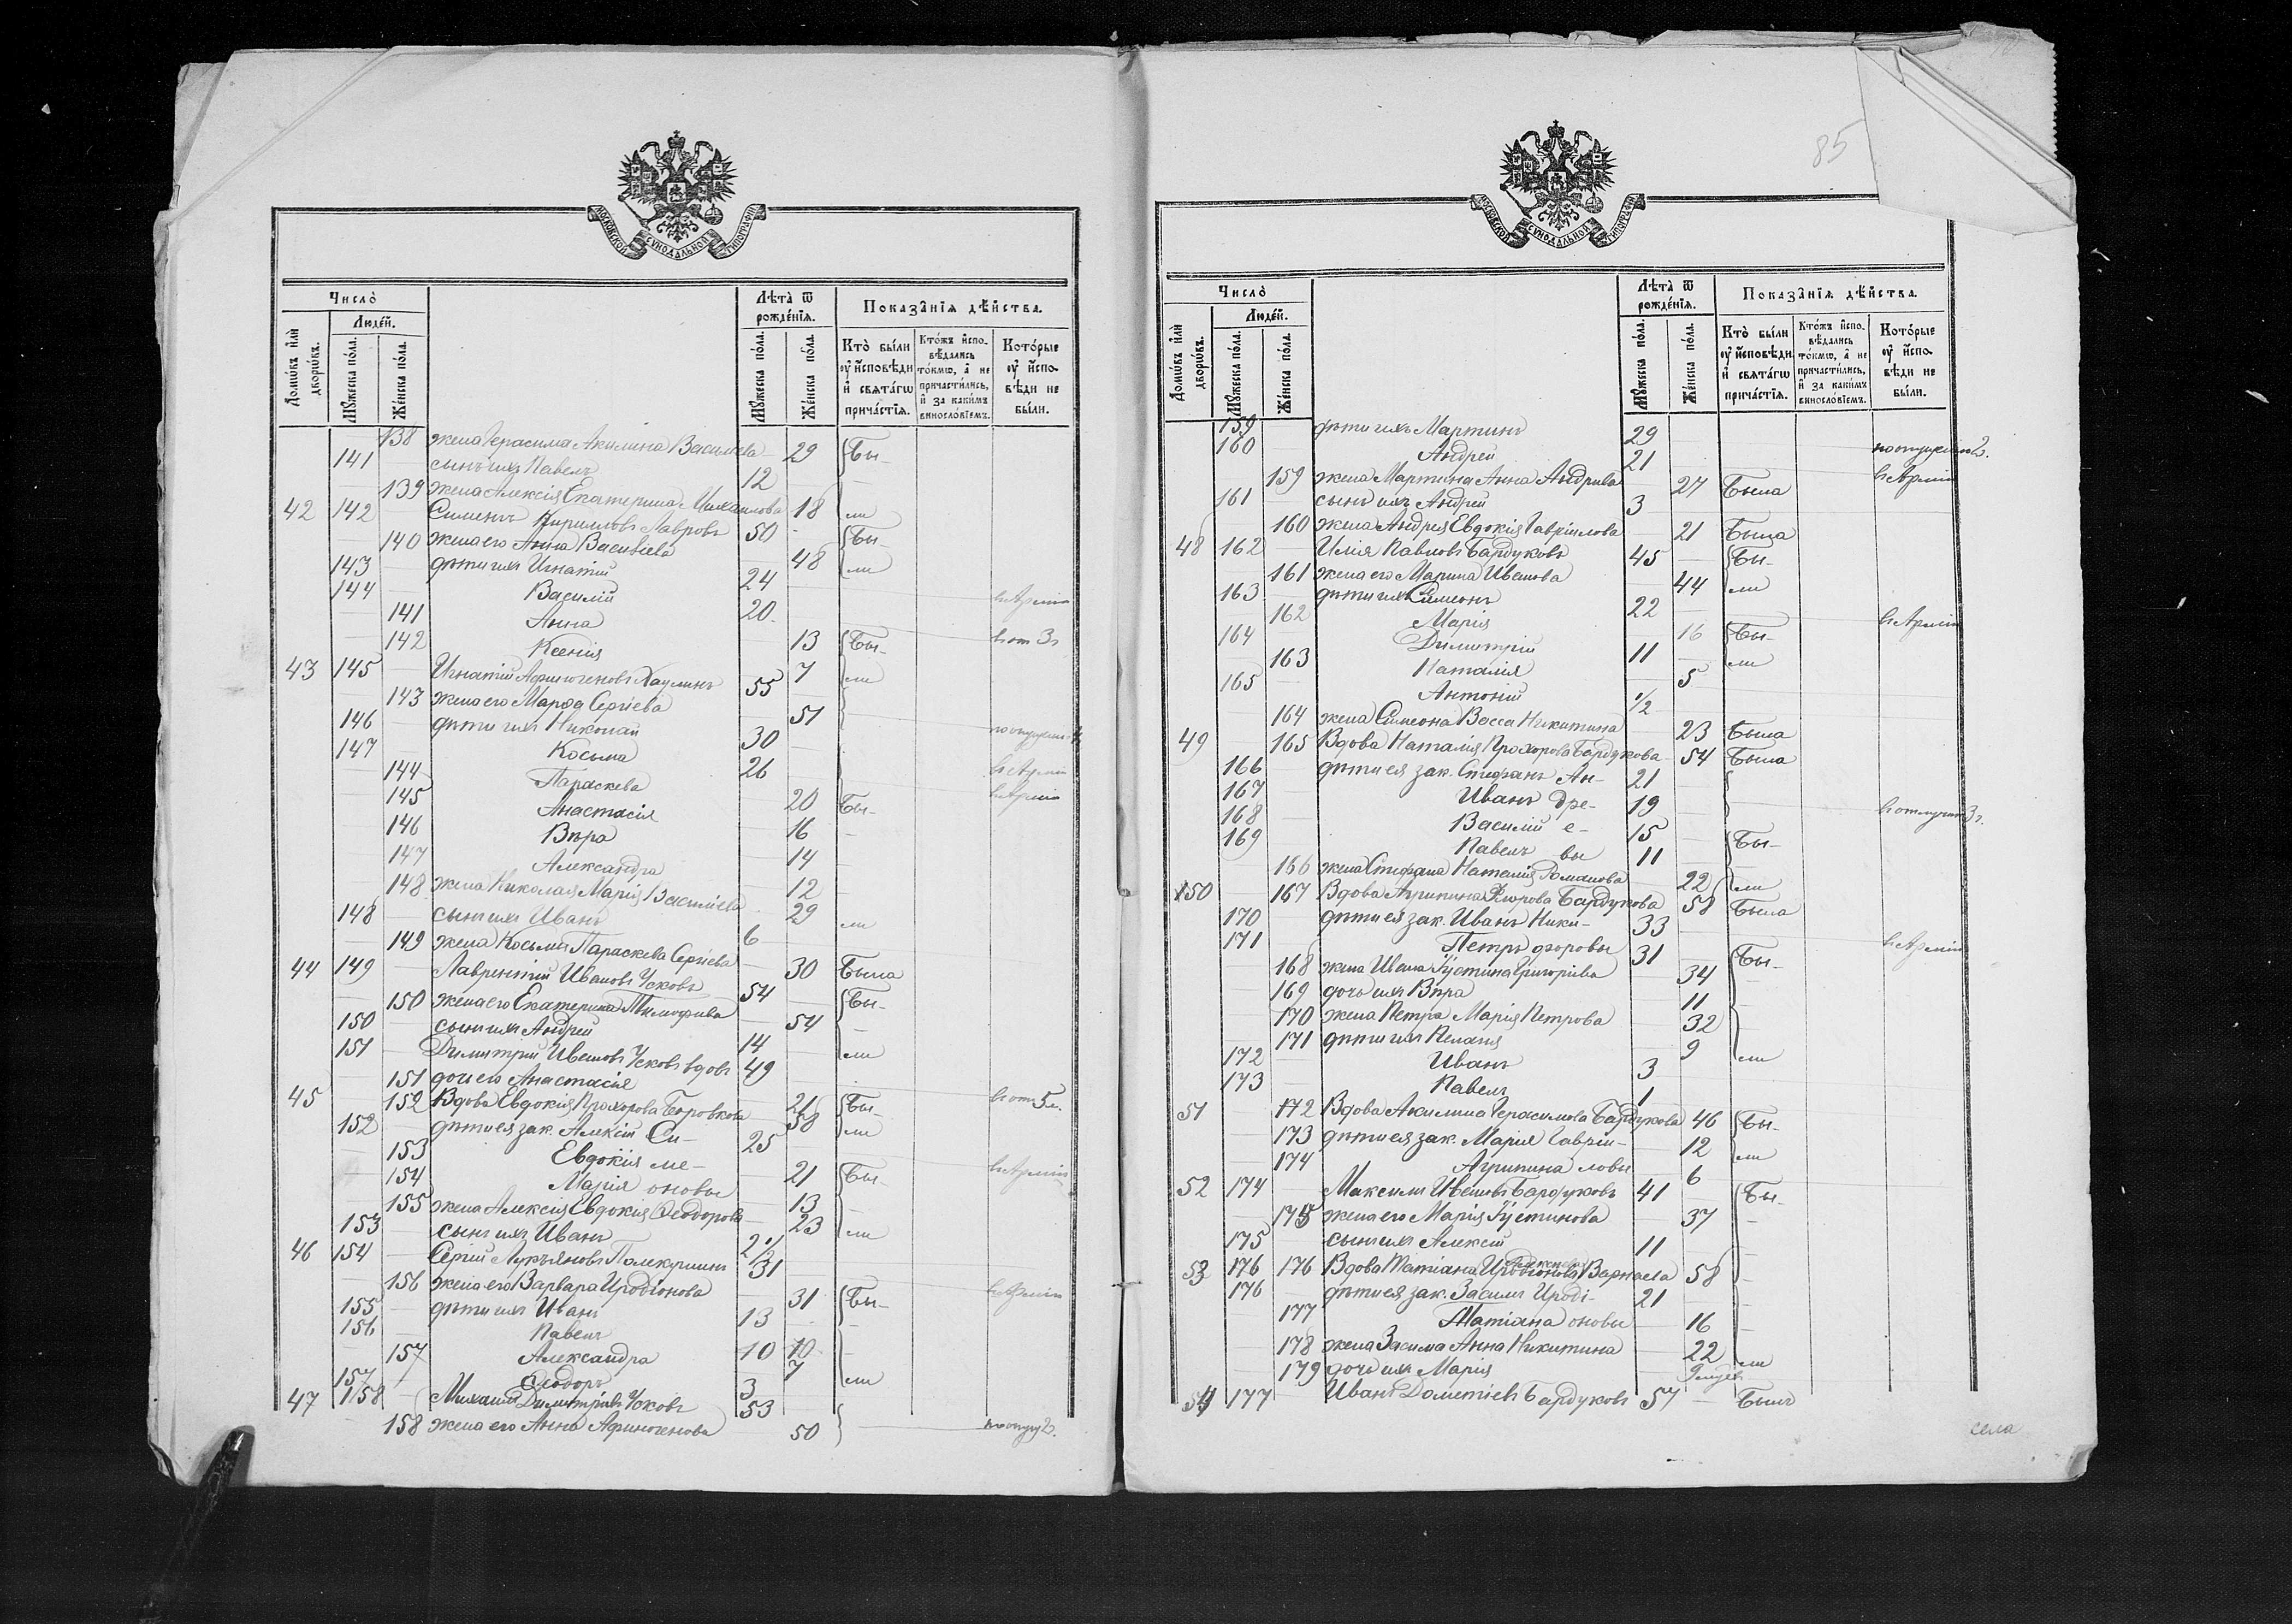 МОСКОВСКОЙ СѴНОДАЛЬНОЙ ТИПОГРАФІИ
Число̀
Людéй.
Домѡ́въ и҆лѝ дворѡ́въ.
Мꙋ́жеска по́ла.
Же́нска по́ла.
Лѣта̀ ѿ рожде́нїѧ.
Мꙋ́жеска по́ла.
Же́нска по́ла.
Показа̑нїѧ дѣ́йства.
Кто̀ бы́ли ᲂу҆ и҆сповѣди и҆ свята́гѡ прича́стїѧ.
Кто́жъ и҆спо-вѣдались то́кмѡ, а҆ не причасти́лись, и҆ за каки́мъ винословїемъ.
Кото́рые ᲂу҆ и҆спо-вѣди не бы́ли.
138 жена Герасима Акилина Васильева 29 Бы-
141 сынъ ихъ Павелъ 12
139 жена Алексія Екатерина Михаилова 18 ли
42 142 Симеонъ Кирилловъ Лавровъ 50 Бы-
140 жена его Анна Васильева 48 ли
143 дѣти ихъ Игнатій 24 въ Арміи
144 Василій 20 въ от 3 г.
141 Анна 13 Бы-
142 Ксенія 7 ли
43 145 Игнатій Афиногеновъ 55
143 жена его Марѳа Сергіева 51
146 дѣти ихъ Николай 30 въ Арміи
147 Косьма 26 въ Арміи
144 Параскева 20 Бы-
145 Анастасія 16
146 Вѣра 14
147 Александра 12
148 жена Николая Марія Васильева 29 ли
148 сынъ ихъ Иванъ 6
149 жена Косьмы Параскева Сергіева 30 Была
44 149 Лаврентій Ивановъ Усковъ 54 Бы-
150 жена его Екатерина Тимофеева 54
150 сынъ ихъ Андрей 14 ли
151 Димитрій Ивановъ Усковъ вдовъ 49 въ от 5 л.
151 дочь его Анастасія 21 Бы-
45 152 Вдова Евдокія Прохорова Боровкова 58 ли
152 дѣти ея зак. Алексій Си- 25 въ Арміи
153 Евдокія ме- 21 Бы-
154 Марія оновы 13
155 жена Алексія Евдокія Ѳеодорова 23 ли
153 сынъ ихъ Иванъ 2½
46 154 Сергій Лукьяновъ 31 въ Арміи
156 жена его Варвара Иродіонова 31 Бы-
155 дѣти ихъ Иванъ 13
156 Павелъ 10
157 Александра 7
157 Ѳеодоръ 3 ли
47 158 Михаилъ Димитріевъ Усковъ 53
158 жена его Анна Афиногенова 50
85
МОСКОВСКОЙ СѴНОДАЛЬНОЙ ТИПОГРАФІИ
Число̀
Людéй.
Домѡ́въ и҆лѝ дворѡ́въ.
Мꙋ́жеска по́ла.
Же́нска по́ла.
Лѣта̀ ѿ рожде́нїѧ.
Мꙋ́жеска по́ла.
Же́нска по́ла.
Показа̑нїѧ дѣ́йства.
Кто̀ бы́ли ᲂу҆ и҆сповѣди и҆ свята́гѡ прича́стїѧ.
Кто́жъ и҆спо-вѣдались то́кмѡ, а҆ не причасти́лись, и҆ за каки́мъ винословїемъ.
Кото́рые ᲂу҆ и҆спо-вѣди не бы́ли.
159 дѣти ихъ Мартинъ 29
160 Андрей 21 въ Арміи
159 жена Мартина Анна Андреева 27 Была
161 сынъ ихъ Андрей 3
160 жена Андрея Евдокія Гавріилова 21 Была
48 162 Илія Павловъ Бардуковъ 45 Бы-
161 жена его Марина Иванова 44 ли
163 дѣти ихъ Симеонъ 22 въ Арміи
162 Марія 16 Бы-
164 Димитрій 11 ли
163 Наталія 5
165 Антоній ½
164 жена Симеона Васса Никитина 23 Была
49 165 Вдова Наталія Прохорова Бардукова 54 Была
166 дѣти ея зак. Стефанъ Ан- 21
167 Иванъ дре- 19 въ отлучкѣ 3 г.
168 Василій е- 15 Бы-
169 Павелъ вы 11
166 жена Стефана Наталія Романова 22 ли
50 167 Вдова Агрипина Бардукова 58 Была
170 дѣти ея зак. Иванъ Ники- 33
171 Петръ форовы 31 въ Арміи
168 жена Ивана Іустина Григоріева 34 Бы-
169 дочь ихъ Вѣра 11
170 жена Петра Марія Петрова 32
171 дѣти ихъ Пелагія 9 ли
172 Иванъ 3
173 Павелъ 1
51 172 Вдова Акилина Герасимова Бардукова 46 Бы-
173 дѣти ея зак. Марія Гавріи- 12 ли
174 Агрипина ловы 6
52 174 Максимъ Ивановъ Бардуковъ 41 Бы-
175 жена его Марія Іустинова 37
175 сынъ ихъ Алексій 11
53 176 176 Вдова Татіана Варнаева 58
176 дѣти ея зак. Засимъ Ироді- 21
177 Татіана оновы 16
178 жена Засима Анна Никитина 22 ли
179 дочь ихъ Марія
54 177 Иванъ Дометіевъ Бардуковъ 57 Былъ
села